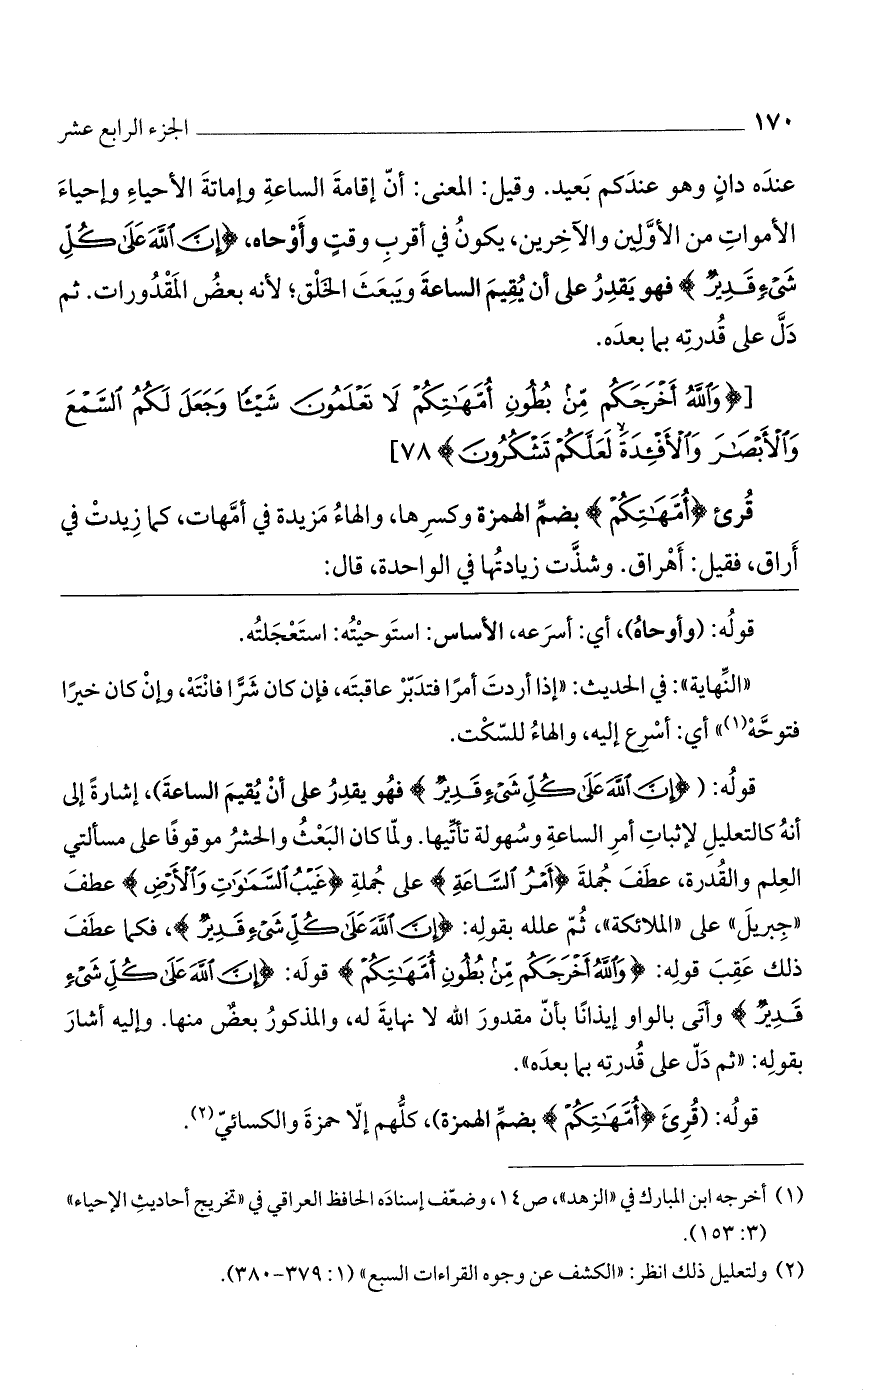 ١٧٠ الجزء الرابع عشر
عندَه دانٍ وهو عندَكم بَعيد. وقيل: المعنى: أنّ إقامةَ الساعةِ وإماتةَ الأحياءِ وإحياءَ
الأمواتِ من الأوَّلِين والآخِرين، يكونُ في أقربِ وقتٍ وأَوْحاه، ﴿إِنَّ ٱللَّهَ عَلَىٰ كُلِّ
شَىْءٍ قَدِيرٌ﴾ فهو يَقدِرُ على أن يُقِيمَ الساعةَ ويَبعَثَ الخَلْق؛ لأنه بعضُ المَقْدُورات. ثم
دَلَّ على قُدرتِه بما بعدَه.
[﴿وَٱللَّهُ أَخْرَجَكُم مِّنۢ بُطُونِ أُمَّهَـٰتِكُمْ لَا تَعْلَمُونَ شَيْـًٔا وَجَعَلَ لَكُمُ ٱلسَّمْعَ
وَٱلْأَبْصَـٰرَ وَٱلْأَفْـِٔدَةَ ۙ لَعَلَّكُمْ تَشْكُرُونَ﴾ ٧٨]
قُرئ ﴿أُمَّهَـٰتِكُمْ﴾ بضمِّ الهمزة وكسرِها، والهاءُ مَزيدة في أمَّهات، كما زِيدتْ في
أَراق، فقيل: أَهْراق. وشذَّت زيادتُها في الواحدة، قال:
قولُه: (وأوحاهُ)، أي: أسرَعه، الأساس: استَوحيْتُه: استَعْجَلته.
«النِّهاية»: في الحديث: «إذا أردتَ أمرًا فتدَبّرْ عاقبتَه، فإن كان شَرًّا فانْتَهْ، وإنْ كان خيرًا
فتوحَّهْ(١)» أي: أسْرِع إليه، والهاءُ للسّكْت.
قولُه: (﴿إِنَّ ٱللَّهَ عَلَىٰ كُلِّ شَىْءٍ قَدِيرٌ﴾ فهُو يقدِرُ على أنْ يُقيمَ الساعةَ)، إشارةً إلى
أنهُ كالتعليلِ لإثباتِ أمرِ الساعةِ وسُهولة تأتِّيها. ولمّا كان البَعْثُ والحشرُ موقوفًا على مسألتي
العِلم والقُدرة، عطَفَ جُملةَ ﴿أَمْرُ ٱلسَّاعَةِ﴾ على جُملةِ ﴿غَيْبُ ٱلسَّمَـٰوَٰتِ وَٱلْأَرْضِ﴾ عطفَ
«جِبريلَ» على «الملائكة»، ثُمّ علله بقولِه: ﴿إِنَّ ٱللَّهَ عَلَىٰ كُلِّ شَىْءٍ قَدِيرٌ﴾، فكما عطَفَ
ذلك عَقِبَ قولِه: ﴿وَٱللَّهُ أَخْرَجَكُم مِّنۢ بُطُونِ أُمَّهَـٰتِكُمْ﴾ قولَه: ﴿إِنَّ ٱللَّهَ عَلَىٰ كُلِّ شَىْءٍ
قَدِيرٌ﴾ وأتَى بالواو إيذانًا بأنّ مقدورَ الله لا نهايةَ له، والمذكورُ بعضٌ منها. وإليه أشارَ
بقولِه: «ثم دَلّ على قُدرتِه بما بعدَه».
قولُه: (قُرِئَ ﴿أُمَّهَـٰتِكُمْ﴾ بضمِّ الهمزة)، كلُّهم إلّا حمزةَ والكسائيّ(٢).
(١) أخرجه ابن المبارك في «الزهد»، ص١٤، وضعّف إسنادَه الحافظ العراقي في «تخريج أحاديثِ الإحياء»
(٣: ١٥٣).
(٢) ولتعليل ذلك انظر: «الكشف عن وجوه القراءات السبع» (١: ٣٧٩-٣٨٠).